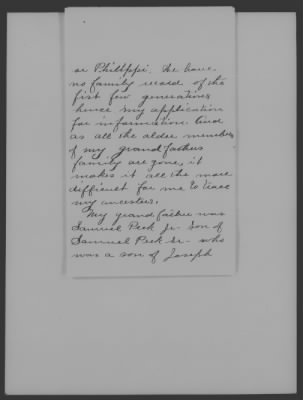 or Philippi. We have
no family record of the
first few generations
hence my application
for information. And
as all the older members
of my grandfathers
family are gone, it
makes it all the more
difficult for me to trace
my ancestors.
My grandfather was
Samuel Peck Jr. son of
Samuel Peck Sr. who
was a son of Joseph